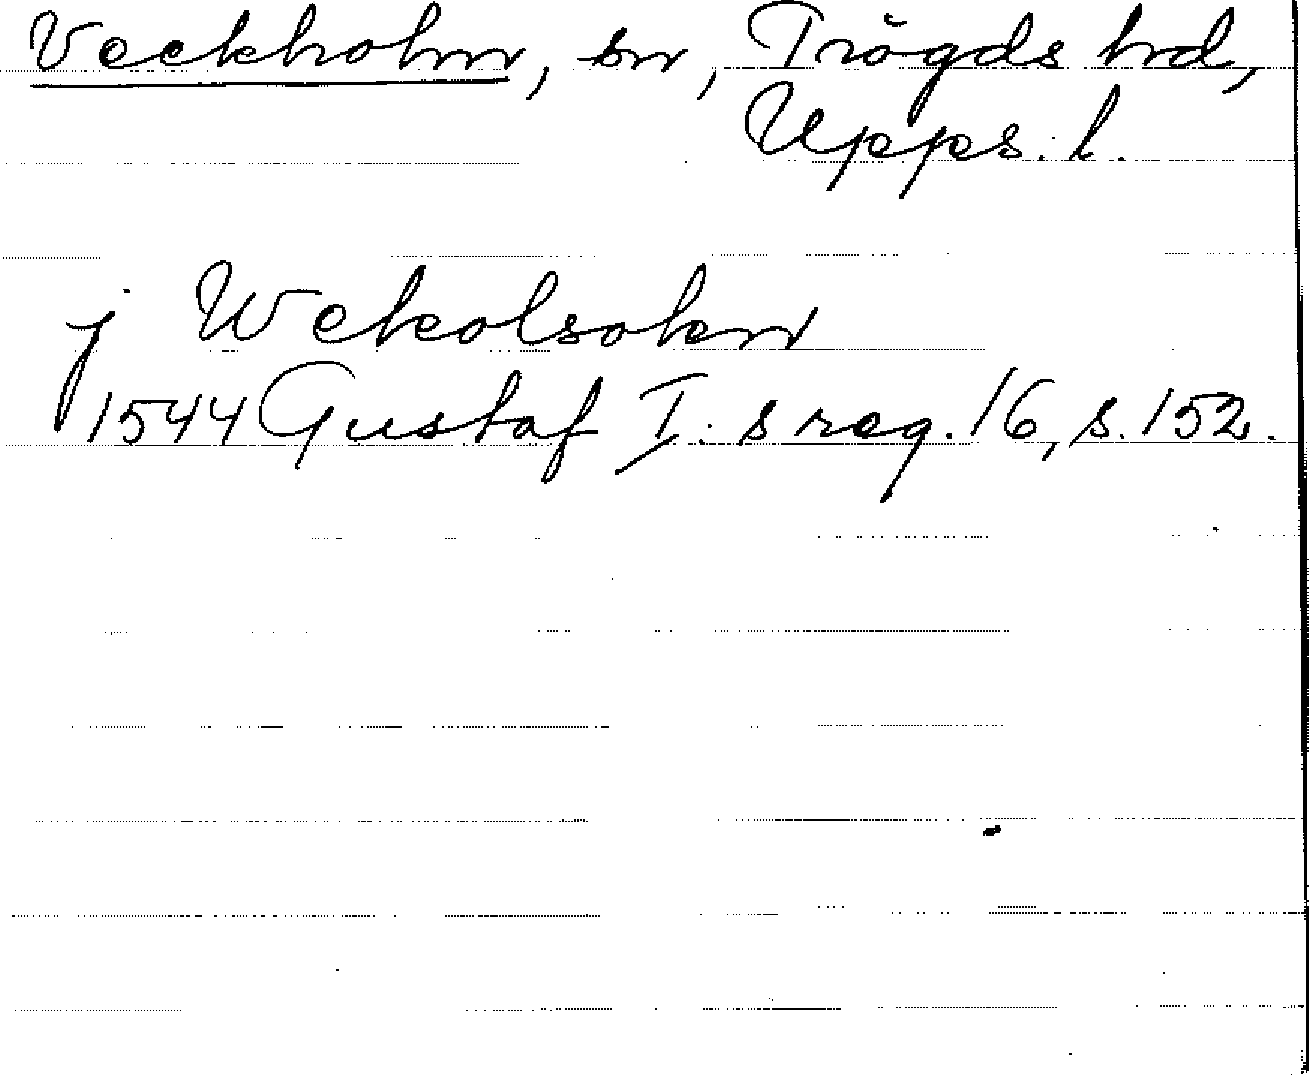 Veckholm, sn, Trögds hd,
Upps. l.
j Wekolsokn
1544 Gustaf I:s reg. 16, s. 152.